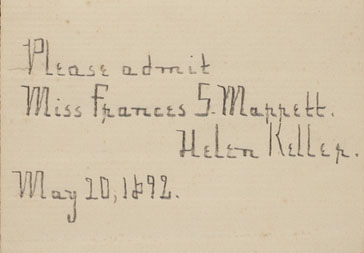 Please admit
Miss Frances S. Marrett.
Helen Keller.
May 20, 1892.